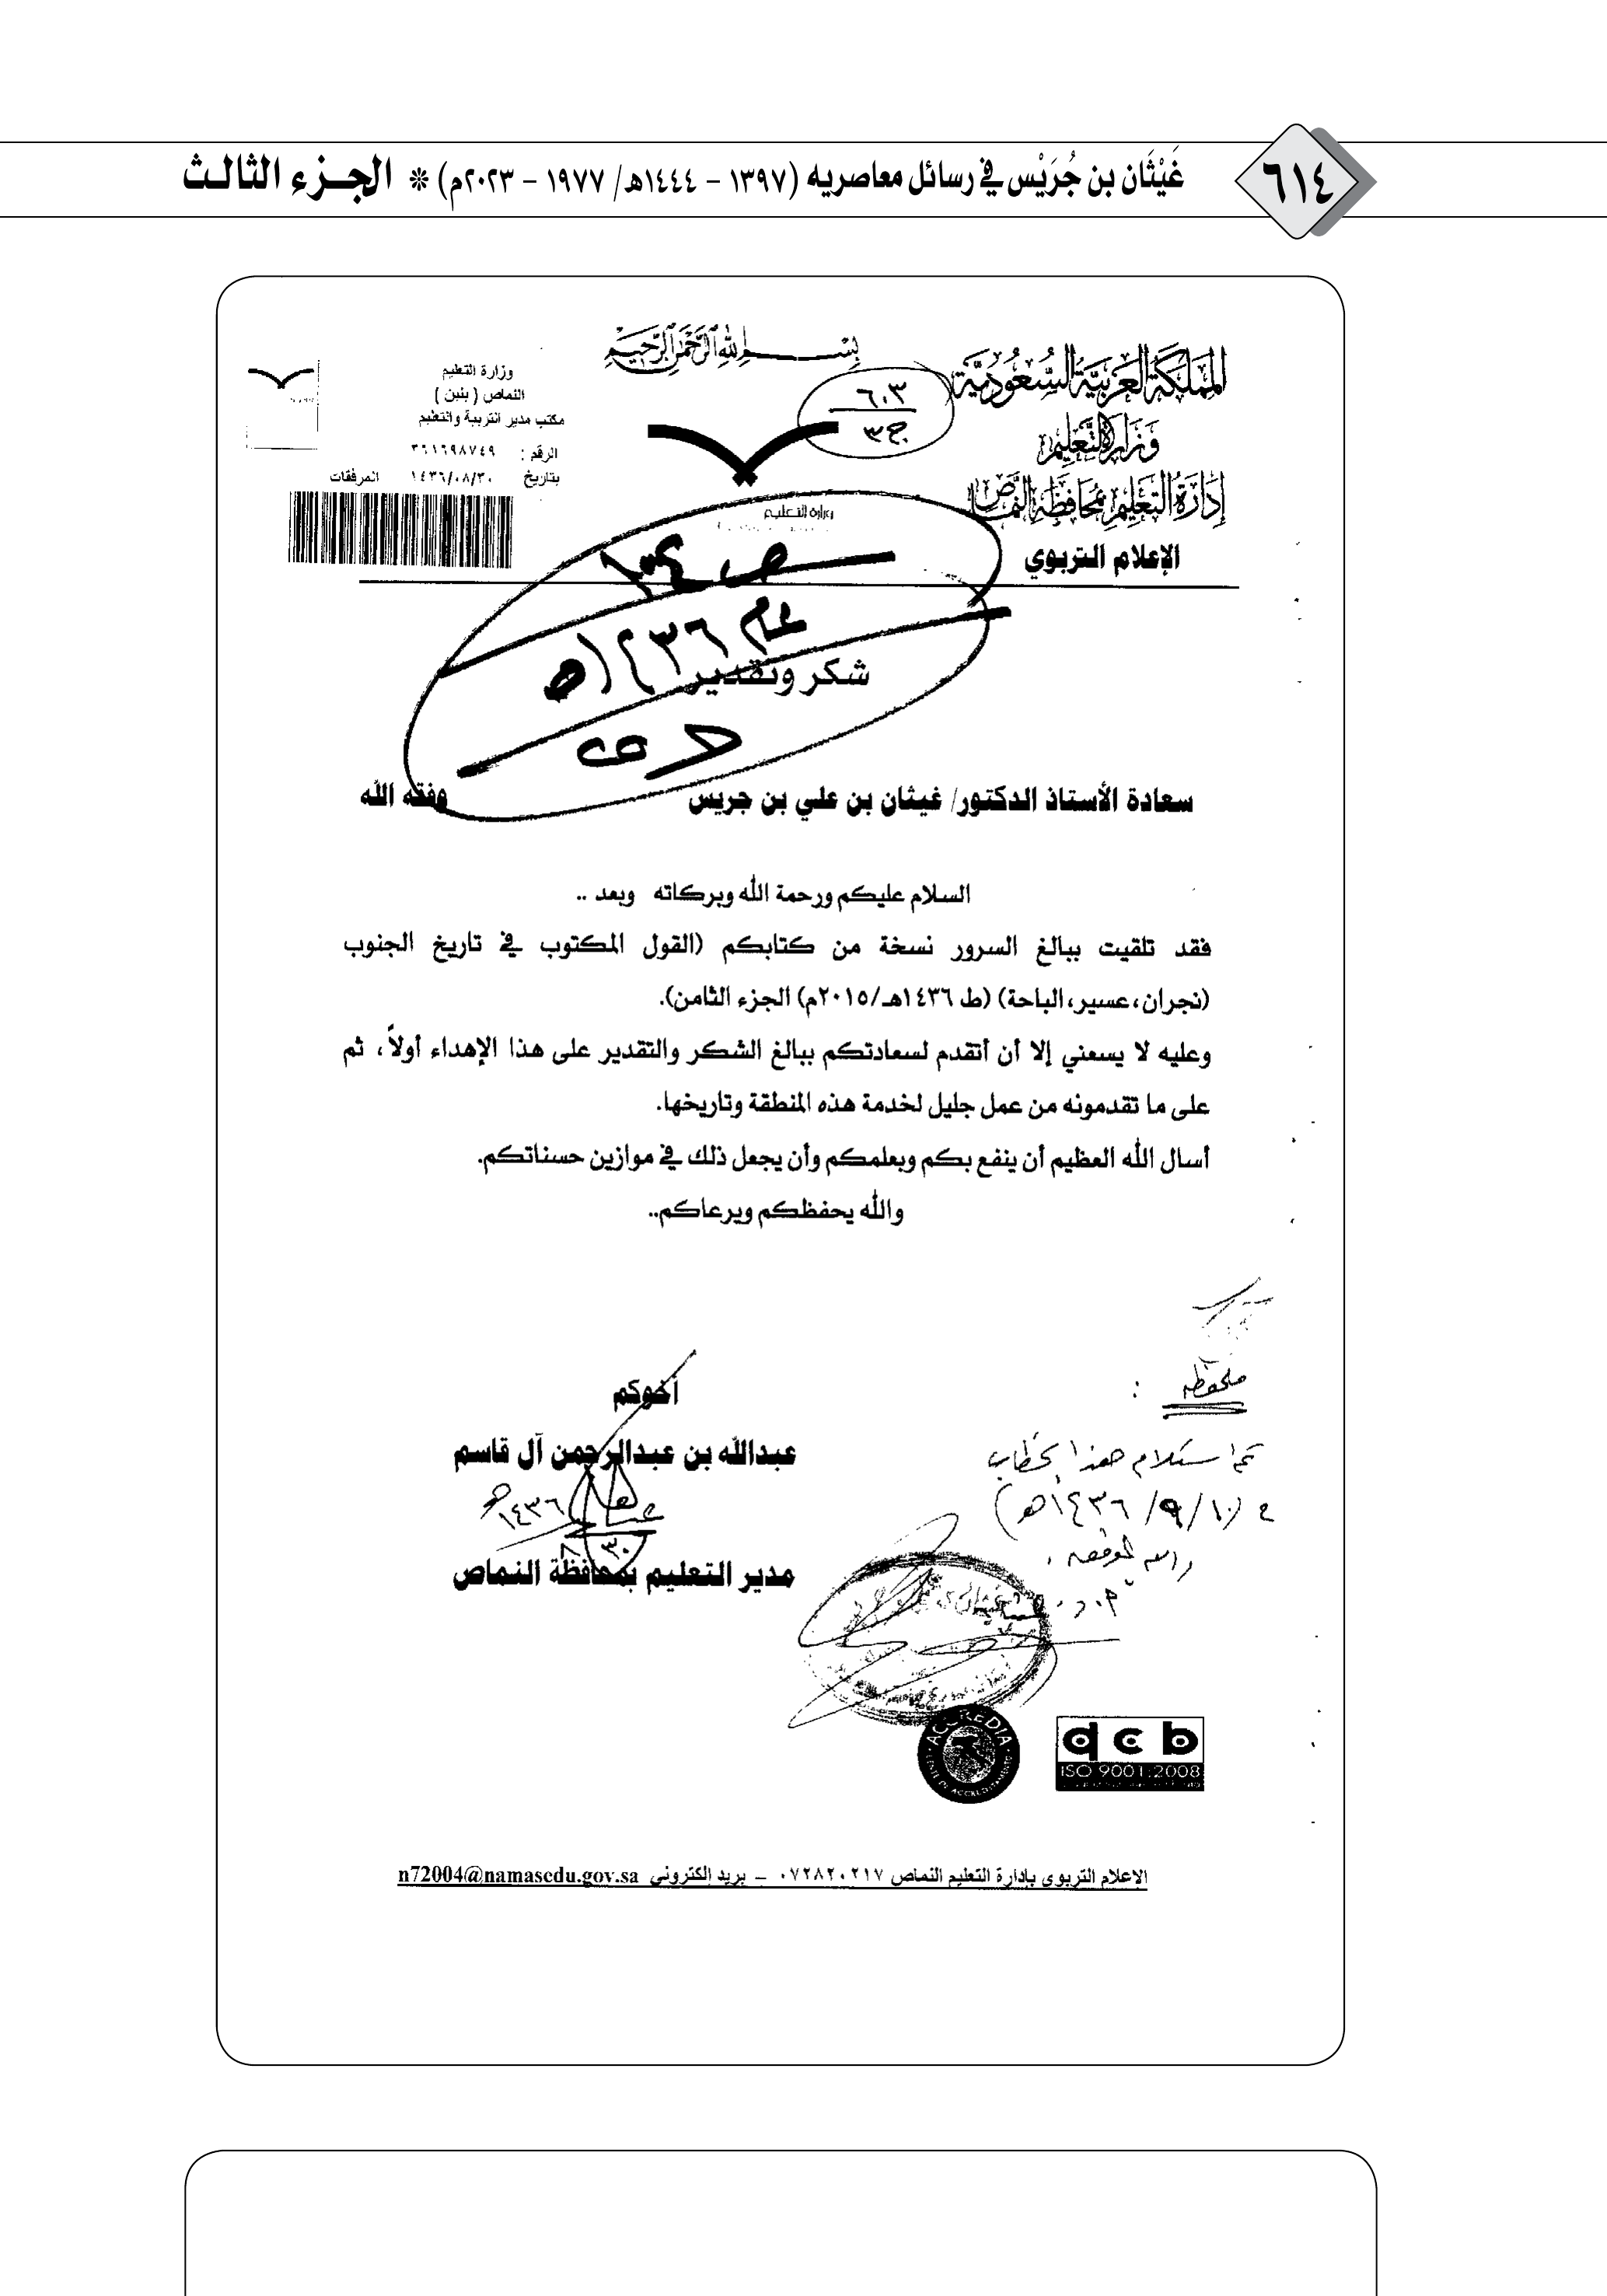 ٦١٤
غَيْثَان بن جُرَيْس في رسائل معاصريه (١٣٩٧ - ١٤٤٤هـ/ ١٩٧٧ - ٢٠٢٣م) * الجـزء الثالـث
بسم الله الرحمن الرحيم
المملكة العربية السعودية
وزارة التعليم
إدارة التعليم بمحافظة النماص
الإعلام التربوي
٦٠٣
ج٣
وزارة التعليم
النماص ( بنين )
مكتب مدير التربية والتعليم
الرقم : ٣٦١٦٩٨٧٤٩
بتاريخ ١٤٣٦/٠٨/٣٠ المرفقات
وزارة التعليم
عام ١٤٣٦هـ
شكر وتقدير
سعادة الأستاذ الدكتور/ غيثان بن علي بن جريس وفقه الله
السلام عليكم ورحمة الله وبركاته وبعد ..
فقد تلقيت ببالغ السرور نسخة من كتابكم (القول المكتوب في تاريخ الجنوب
(نجران، عسير، الباحة) (ط ١٤٣٦هـ/٢٠١٥م) الجزء الثامن).
وعليه لا يسعني إلا أن أتقدم لسعادتكم ببالغ الشكر والتقدير على هذا الإهداء أولاً، ثم
على ما تقدمونه من عمل جليل لخدمة هذه المنطقة وتاريخها.
أسال الله العظيم أن ينفع بكم وبعلمكم وأن يجعل ذلك في موازين حسناتكم.
والله يحفظكم ويرعاكم..
أخوكم
عبدالله بن عبدالرحمن آل قاسم
١٤٣٦هـ
٣٠
مدير التعليم بمحافظة النماص
ملحوظة :
تم استلام هذا الخطاب
والله الموفق
ACCREDIA
qcb
ISO 9001:2008
الإعلام التربوي بإدارة التعليم النماص ٠٧٢٨٢٠٢١٧ – بريد إلكتروني n72004@namasedu.gov.sa